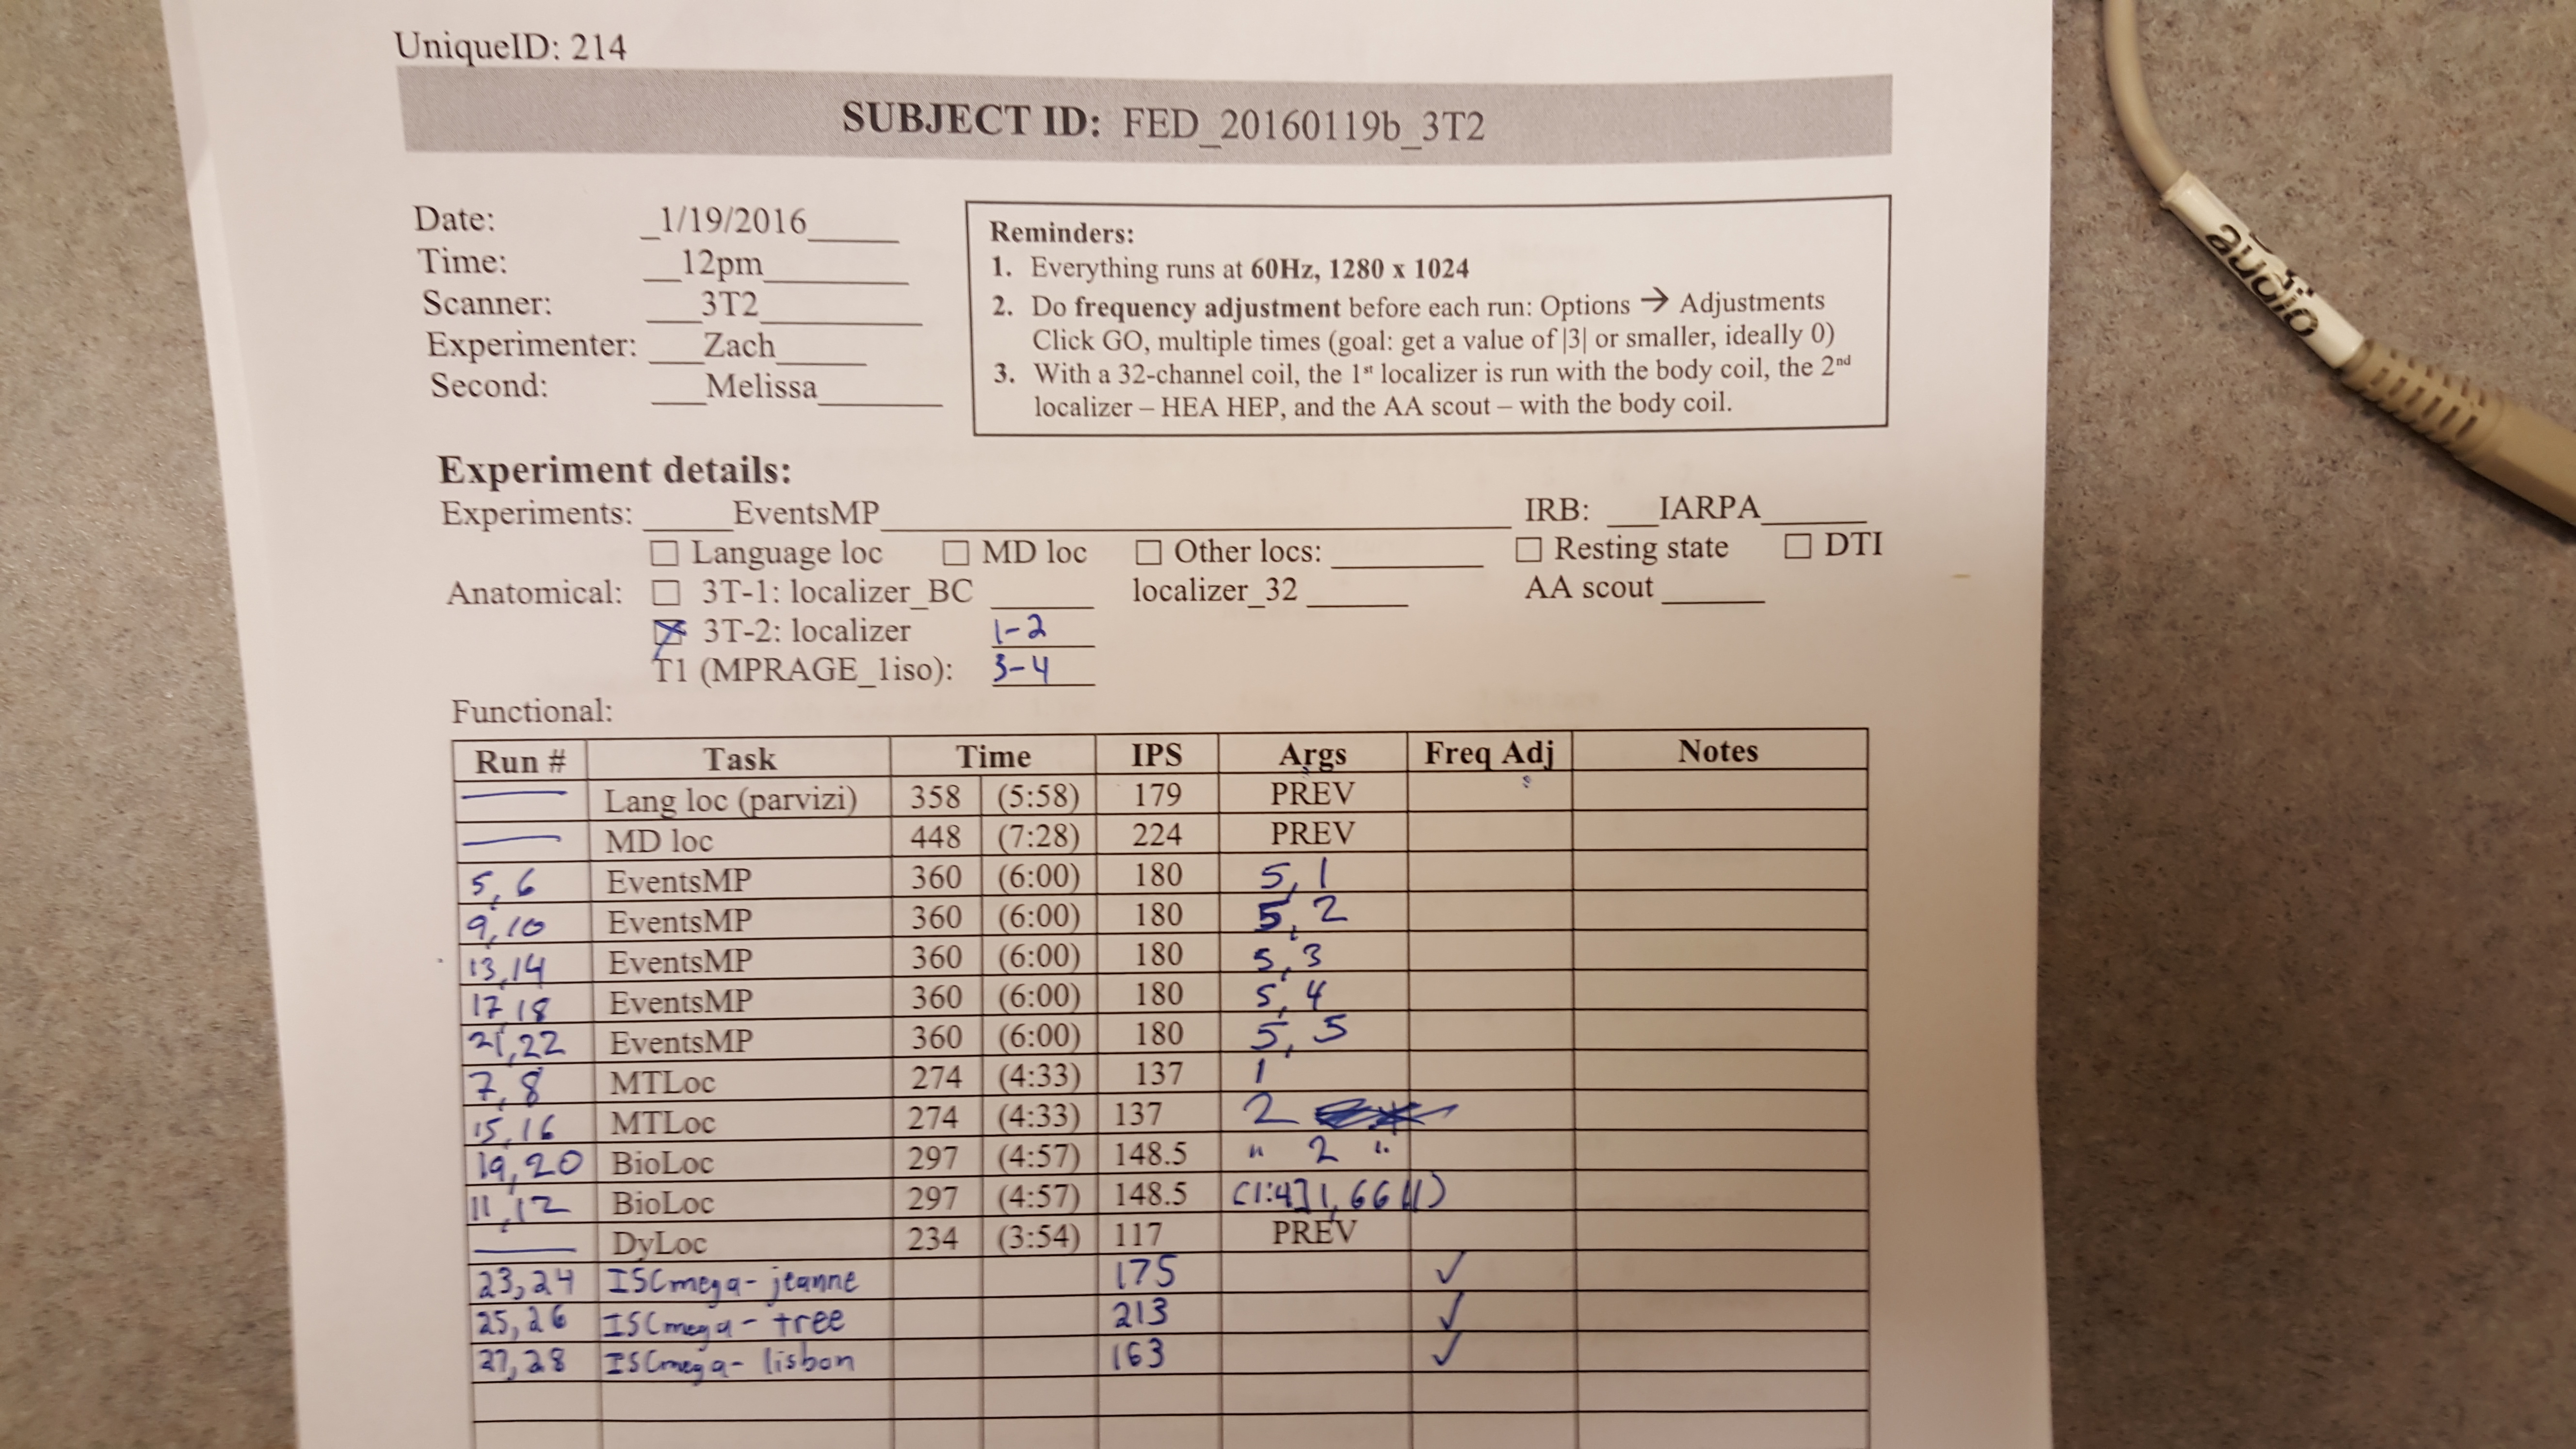 UniqueID: 214
SUBJECT ID: FED_20160119b_3T2
Date: _1/19/2016_____
Time: __12pm________
Scanner: ___3T2_________
Experimenter: ___Zach_____
Second: ___Melissa_______
Reminders:
1. Everything runs at 60Hz, 1280 x 1024
2. Do frequency adjustment before each run: Options → Adjustments
Click GO, multiple times (goal: get a value of |3| or smaller, ideally 0)
3. With a 32-channel coil, the 1st localizer is run with the body coil, the 2nd
localizer – HEA HEP, and the AA scout – with the body coil.
Experiment details:
Experiments: _____EventsMP____ IRB: ___IARPA______
☐ Language loc ☐ MD loc ☐ Other locs: ________ ☐ Resting state ☐ DTI
Anatomical: ☐ 3T-1: localizer_BC ______ localizer_32 ______ AA scout ______
☒ 3T-2: localizer 1-2
T1 (MPRAGE_1iso): 3-4
Functional:
Run # Task Time IPS Args Freq Adj Notes
— Lang loc (parvizi) 358 (5:58) 179 PREV
— MD loc 448 (7:28) 224 PREV
5, 6 EventsMP 360 (6:00) 180 5, 1
9, 10 EventsMP 360 (6:00) 180 5, 2
13, 14 EventsMP 360 (6:00) 180 5, 3
17, 18 EventsMP 360 (6:00) 180 5, 4
21, 22 EventsMP 360 (6:00) 180 5, 5
7, 8 MTLoc 274 (4:33) 137 1
15, 16 MTLoc 274 (4:33) 137 2
19, 20 BioLoc 297 (4:57) 148.5 " 2 "
11, 12 BioLoc 297 (4:57) 148.5
— DyLoc 234 (3:54) 117 PREV
23, 24 ISCmega- jeanne 175 ✓
25, 26 ISCmega - tree 213 ✓
27, 28 ISCmega- lisbon 163 ✓
audio